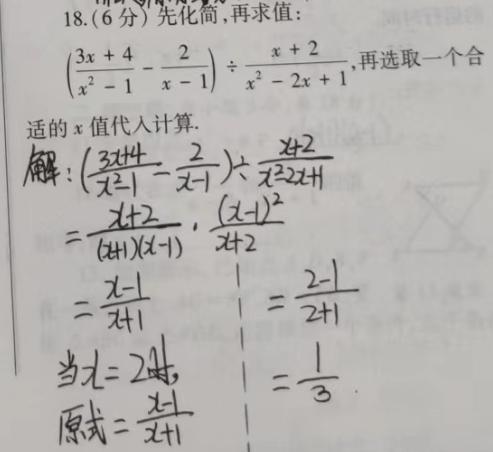 18.(6分)先化简,再求值:
(3x+4/x²-1 - 2/x-1) ÷ x+2/x²-2x+1,再选取一个合
适的x值代入计算.
解:(3x+4/x²-1 - 2/x-1)÷ x+2/x²2x+1
= x+2/(x+1)(x-1) · (x-1)²/x+2
= x-1/x+1
当x=2时,
原式= x-1/x+1
= 2-1/2+1
= 1/3.